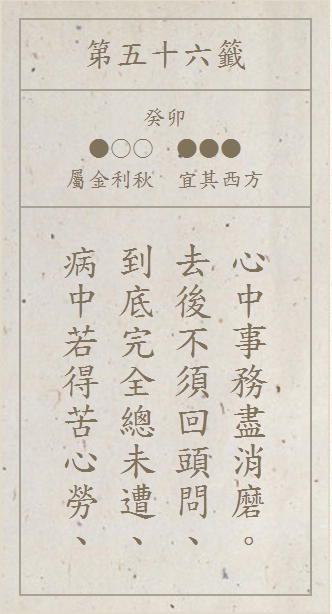 第五十六籤
癸卯
●○○ ●●●
屬金利秋 宜其西方
病中若得苦心勞、
到底完全總未遭、
去後不須回頭問、
心中事務盡消磨。